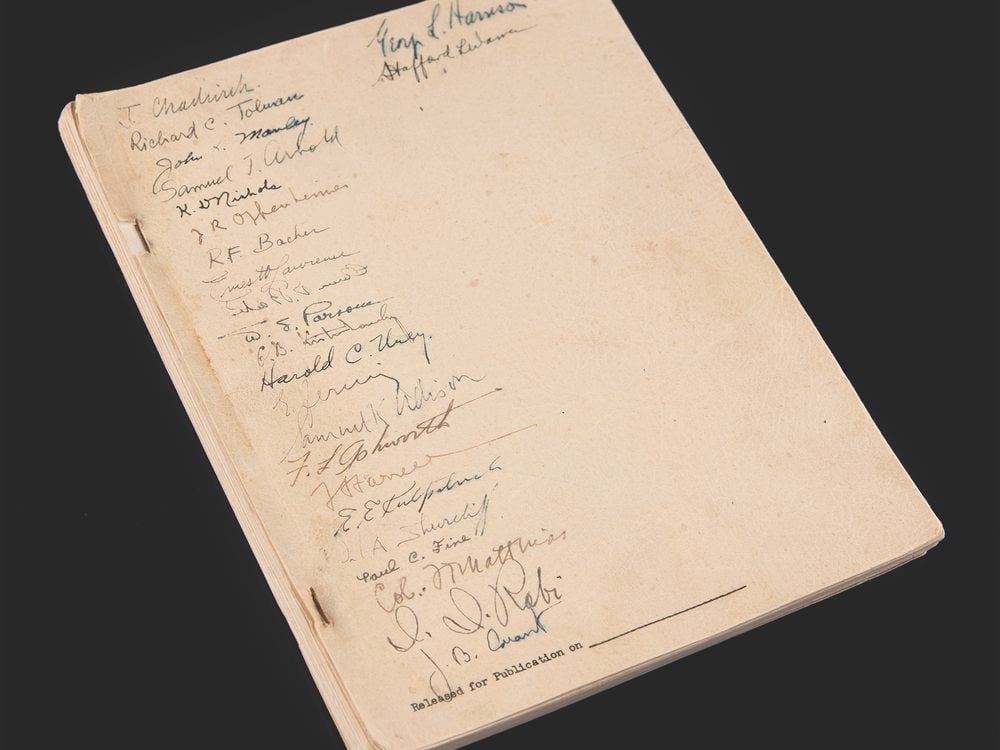 Georg L. Harrison
Stafford
J. Chadwick
Richard C. Tolman
John Manley
Samuel T. Arnold
K. D Nichols
J R Oppenheimer
R.F. Bacher
Ernest Lawrence
W. S. Parsons
E.B.
Harold C. Urey.
E Fermi
Samuel K Allison
F. L Ashworth
E. E Kirkpatrick
W A Shurcliff
Paul C. Fine
Col. Matthias
I. I. Rabi
J. B. Conant
Released for Publication on